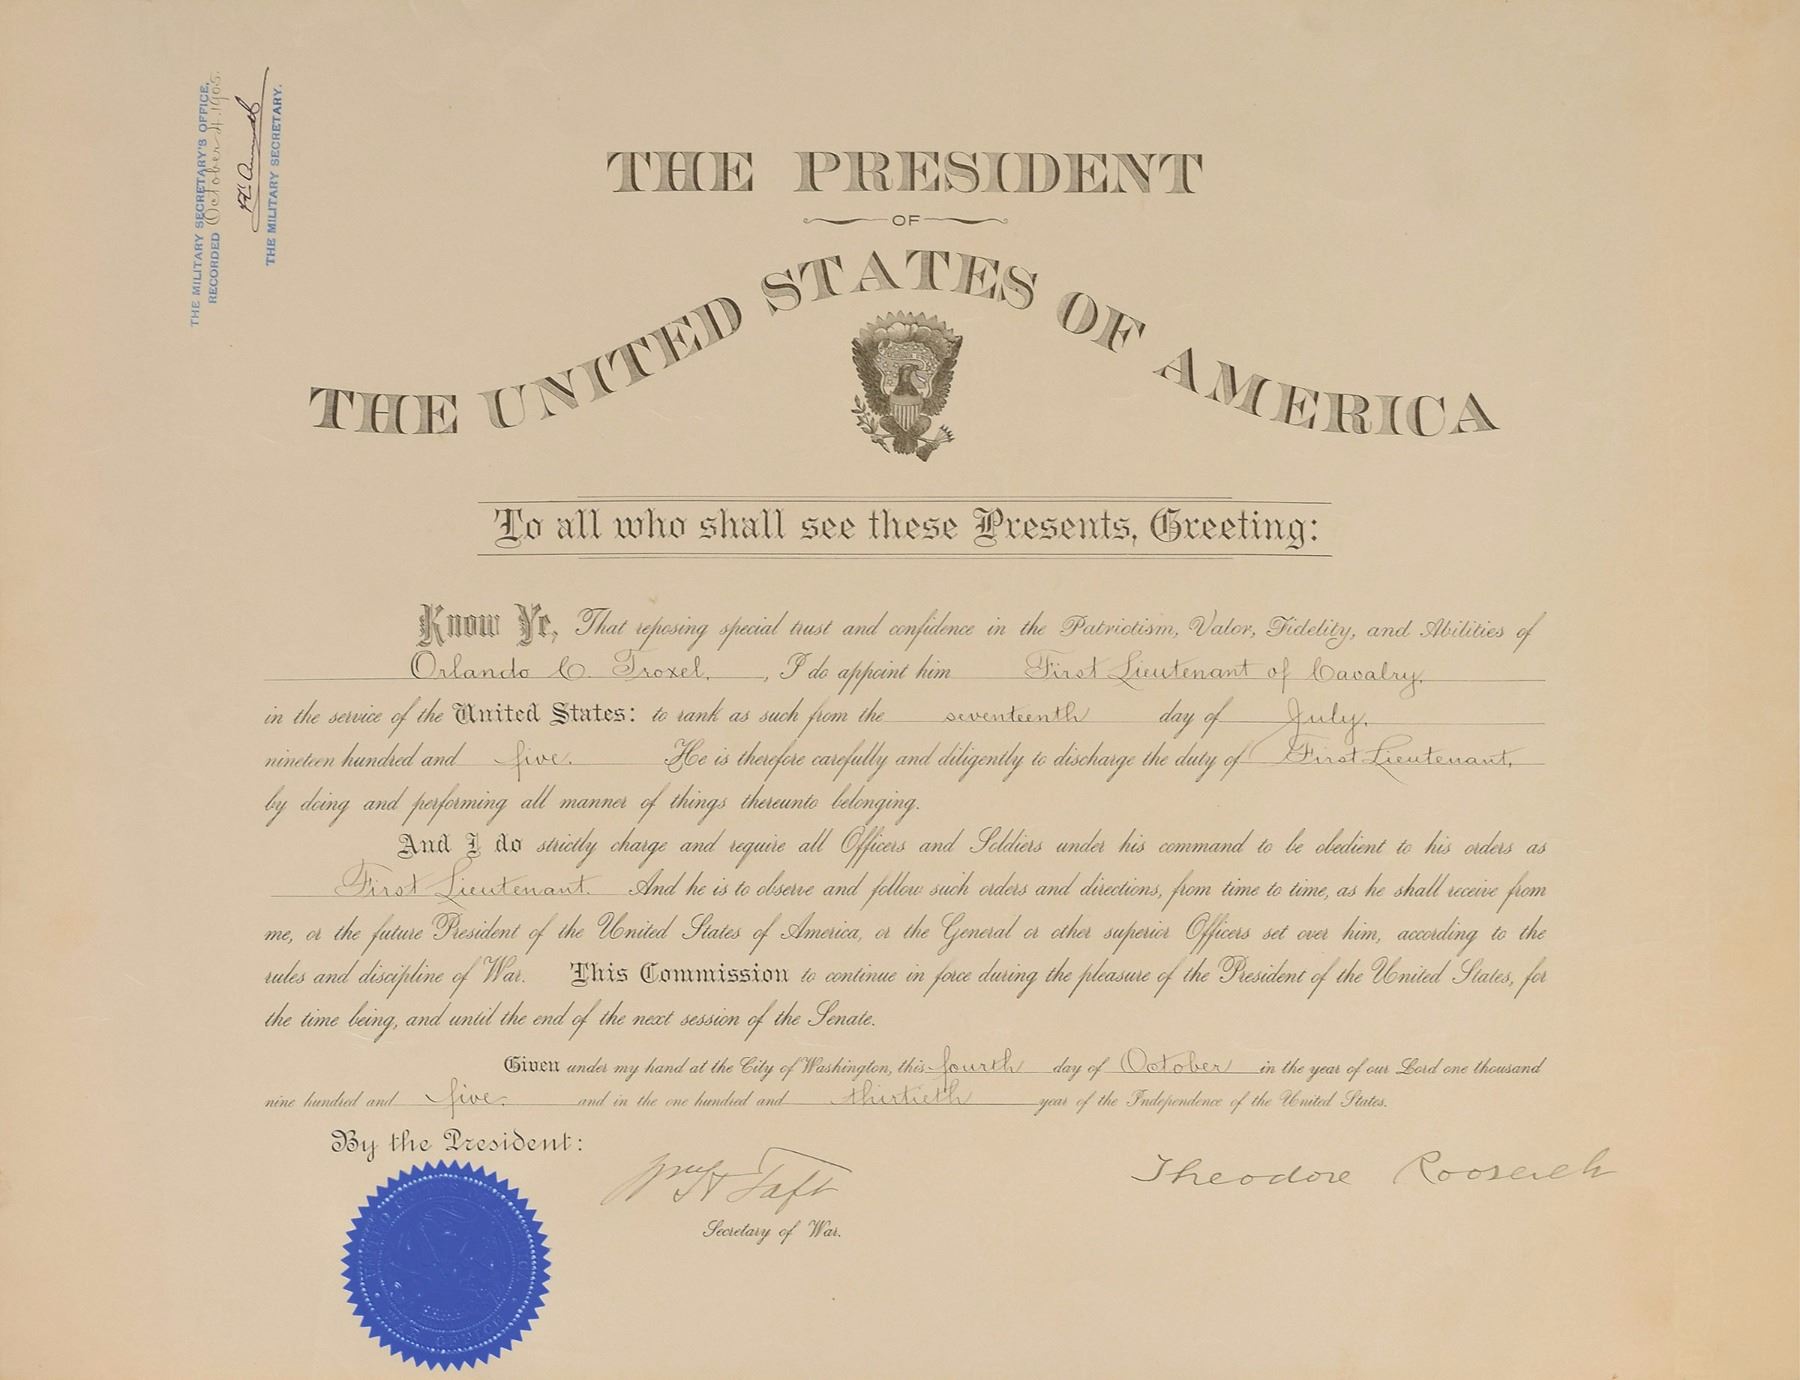 THE MILITARY SECRETARY'S OFFICE,
RECORDED October 4, 1905.
THE MILITARY SECRETARY.
THE PRESIDENT
OF
THE UNITED STATES OF AMERICA
To all who shall see these Presents, Greeting:
Know Ye, That reposing special trust and confidence in the Patriotism, Valor, Fidelity, and Abilities of
Orlando C. Troxel, , I do appoint him First Lieutenant of Cavalry,
in the service of the United States: to rank as such from the seventeenth day of July,
nineteen hundred and five. He is therefore carefully and diligently to discharge the duty of First Lieutenant,
by doing and performing all manner of things thereunto belonging.
And I do strictly charge and require all Officers and Soldiers under his command to be obedient to his orders as
First Lieutenant. And he is to observe and follow such orders and directions, from time to time, as he shall receive from
me, or the future President of the United States of America, or the General or other superior Officers set over him, according to the
rules and discipline of War. This Commission to continue in force during the pleasure of the President of the United States, for
the time being, and until the end of the next session of the Senate.
Given under my hand at the City of Washington, this fourth day of October in the year of our Lord one thousand
nine hundred and five, and in the one hundred and thirtieth year of the Independence of the United States.
By the President:
Wm H Taft
Theodore Roosevelt
Secretary of War.